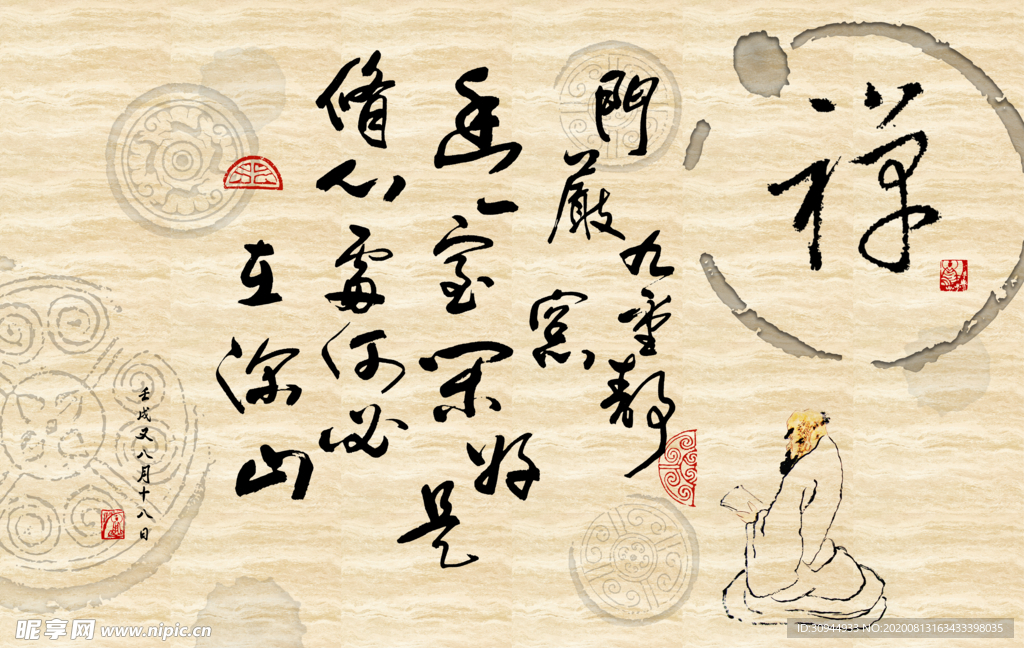 禅
門嚴九重静
窓
幽一室閑好是
脩心處何必
在深山
壬戌又八月十八日
昵享网 www.nipic.cn
ID:30944933 NO:20200813163433398035